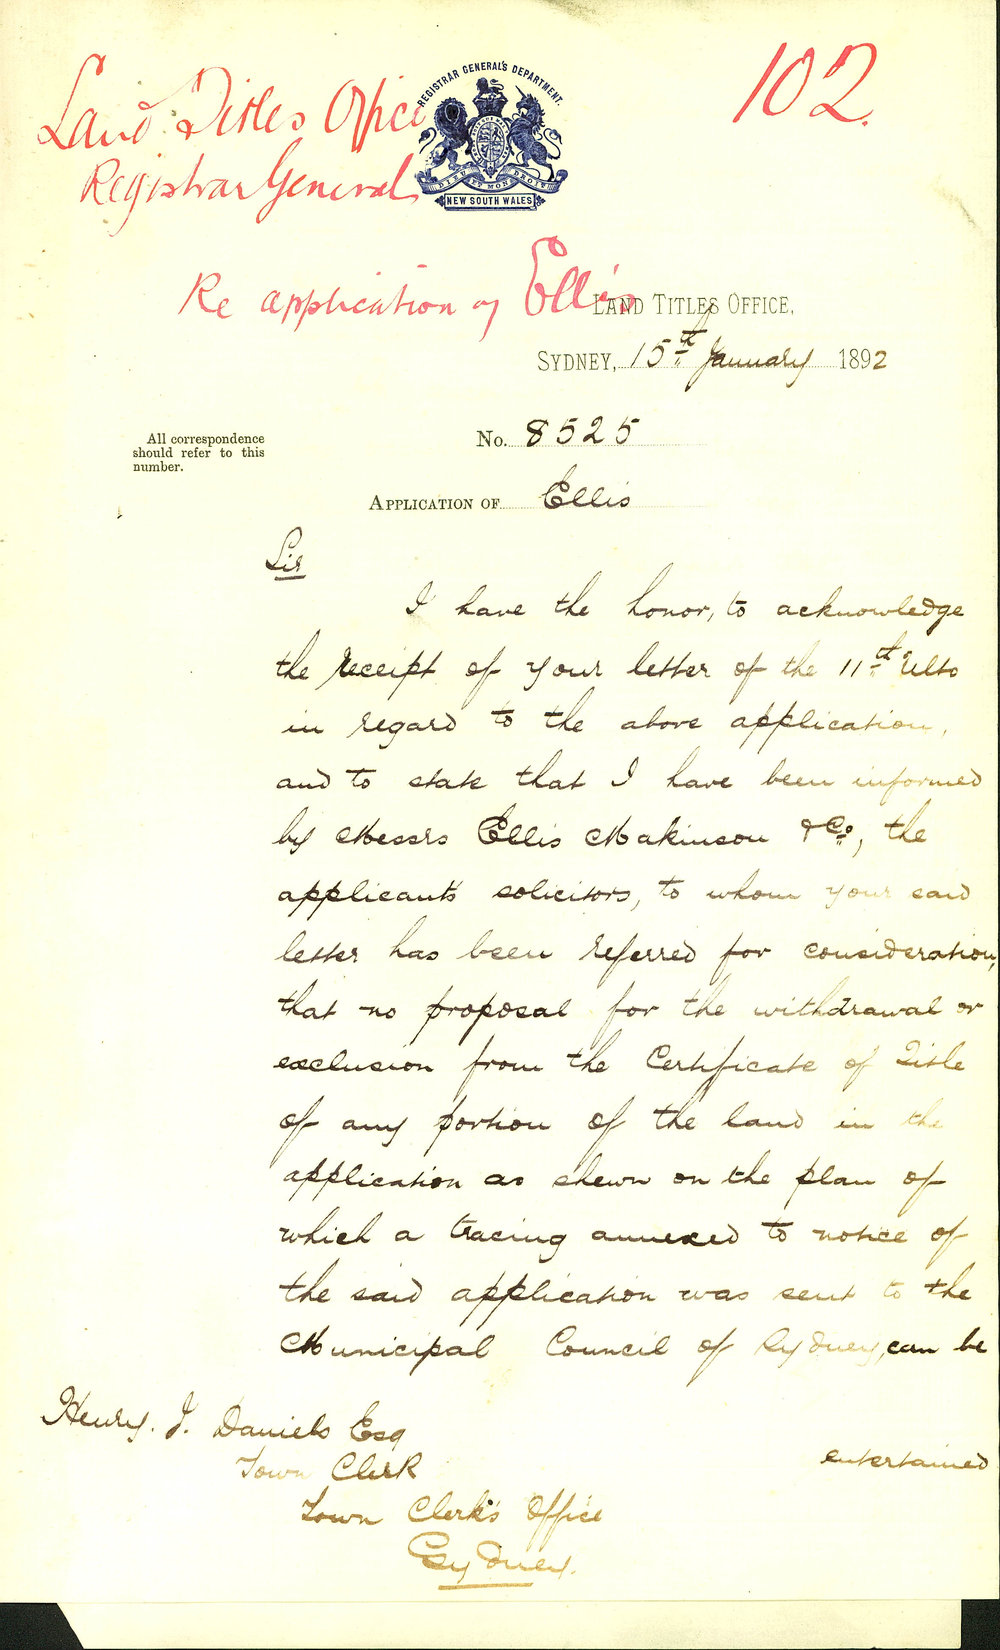 102.
Land Titles Office
Registrar General
REGISTRAR GENERAL'S DEPARTMENT.
DIEU ET MON DROIT
NEW SOUTH WALES
Re application of Ellis
LAND TITLES OFFICE,
SYDNEY, 15th January 1892
All correspondence
should refer to this
number.
No. 8525
APPLICATION OF Ellis
Sir
I have the honor, to acknowledge
the receipt of your letter of the 11th Ulto
in regard to the above application,
and to state that I have been informed
by Messrs Ellis Makinson & Co, the
applicant's solicitors, to whom your said
letter has been referred for consideration,
that no proposal for the withdrawal or
exclusion from the Certificate of Title
of any portion of the land in the
application as shewn on the plan of
which a tracing annexed to notice of
the said application was sent to the
Municipal Council of Sydney, can be
entertained
Henry. J. Daniels Esq
Town Clerk
Town Clerk's Office
Sydney.